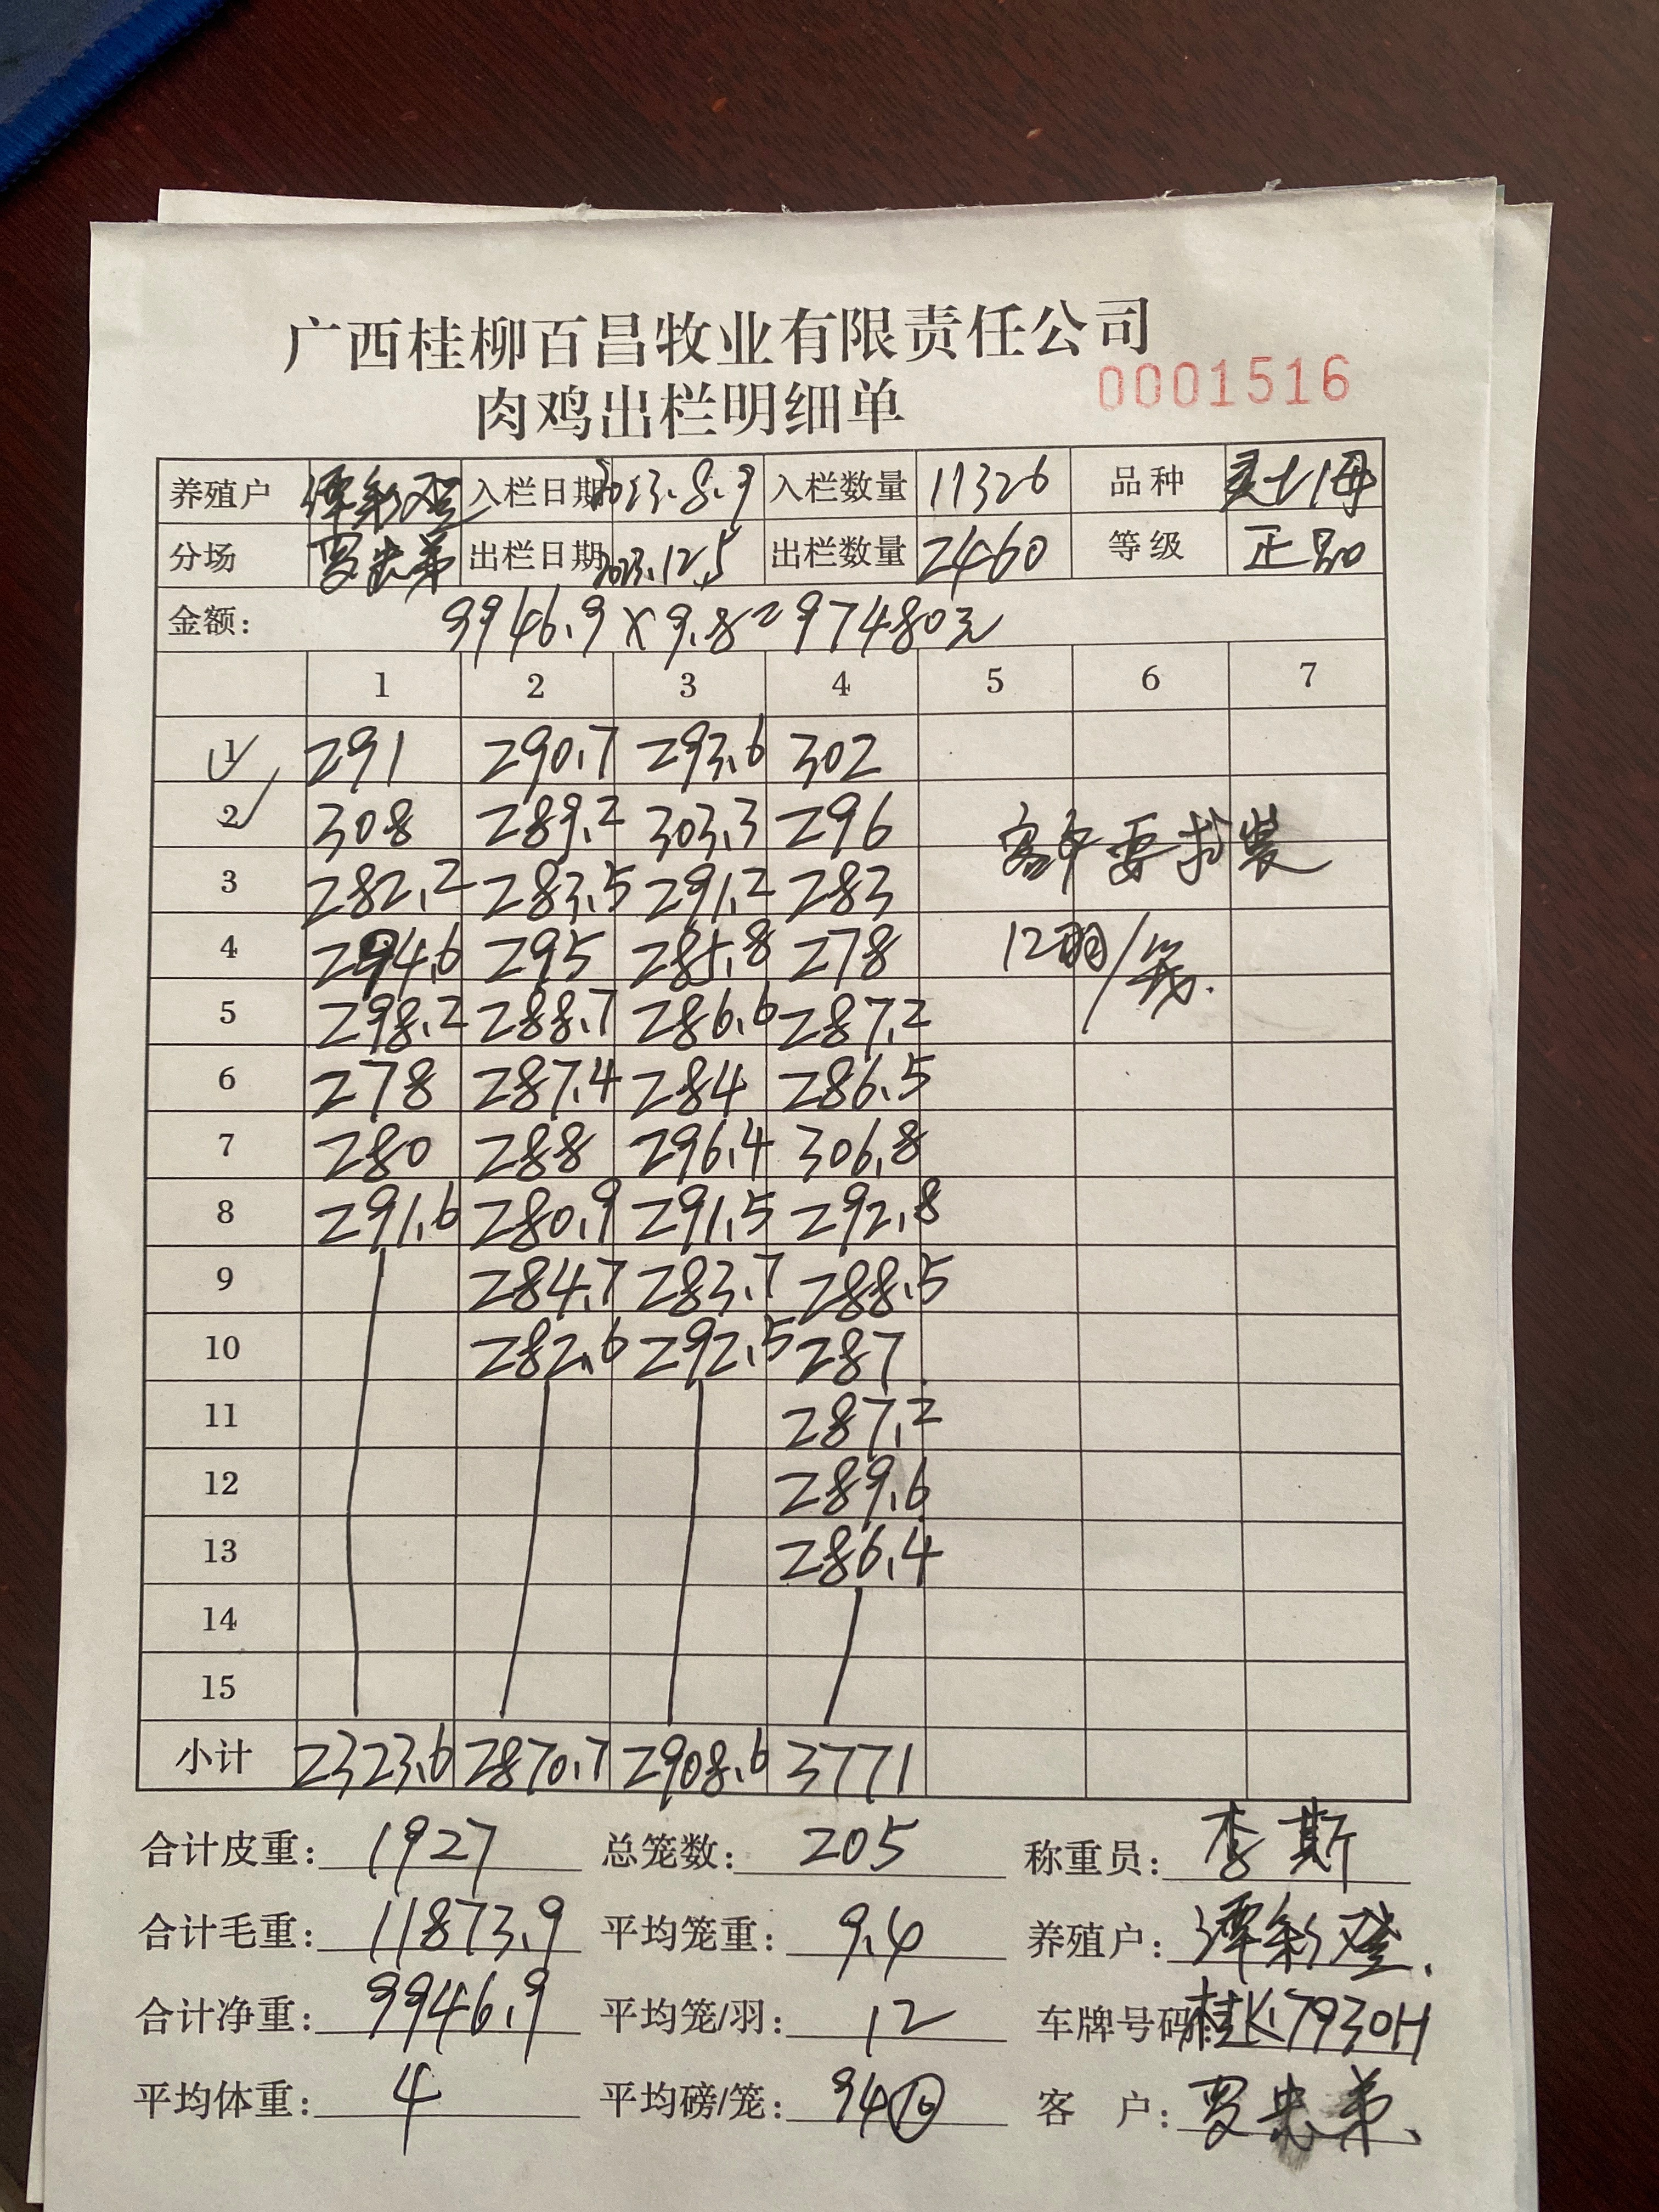 广西桂柳百昌牧业有限责任公司
肉鸡出栏明细单 0001516
养殖户 谭彩登 入栏日期 2023.8.9 入栏数量 11326 品种 灵土1母
分场 出栏日期 2023.12.5 出栏数量 2460 等级 正品
金额: 9946.9×9.8=97480元
1 2 3 4 5 6 7
1 291 290.7 293.6 302
2 308 289.2 303.3 296 客户要求装
3 282.2 283.5 291.2 283
4 294.6 295 285.8 278 12羽/笼.
5 298.2 288.7 286.6 287.2
6 278 287.4 284 286.5
7 280 288 296.4 306.8
8 291.6 280.9 291.5 292.8
9 284.7 283.7 288.5
10 282.6 292.5 287
11 287.2
12 289.6
13 286.4
14
15
小计 2323.6 2870.7 2908.6 3771
合计皮重: 1927 总笼数: 205 称重员: 李斯
合计毛重: 11873.9 平均笼重: 9.4 养殖户: 谭彩登.
合计净重: 9946.9 平均笼/羽: 12 车牌号码: 桂K7930H
平均体重: 4 平均磅/笼: 94 客户: